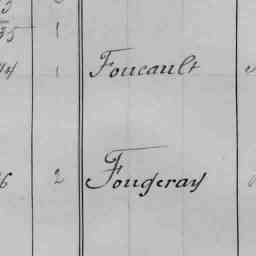 35 1
44 1 Foucault
6 2 Fougeray